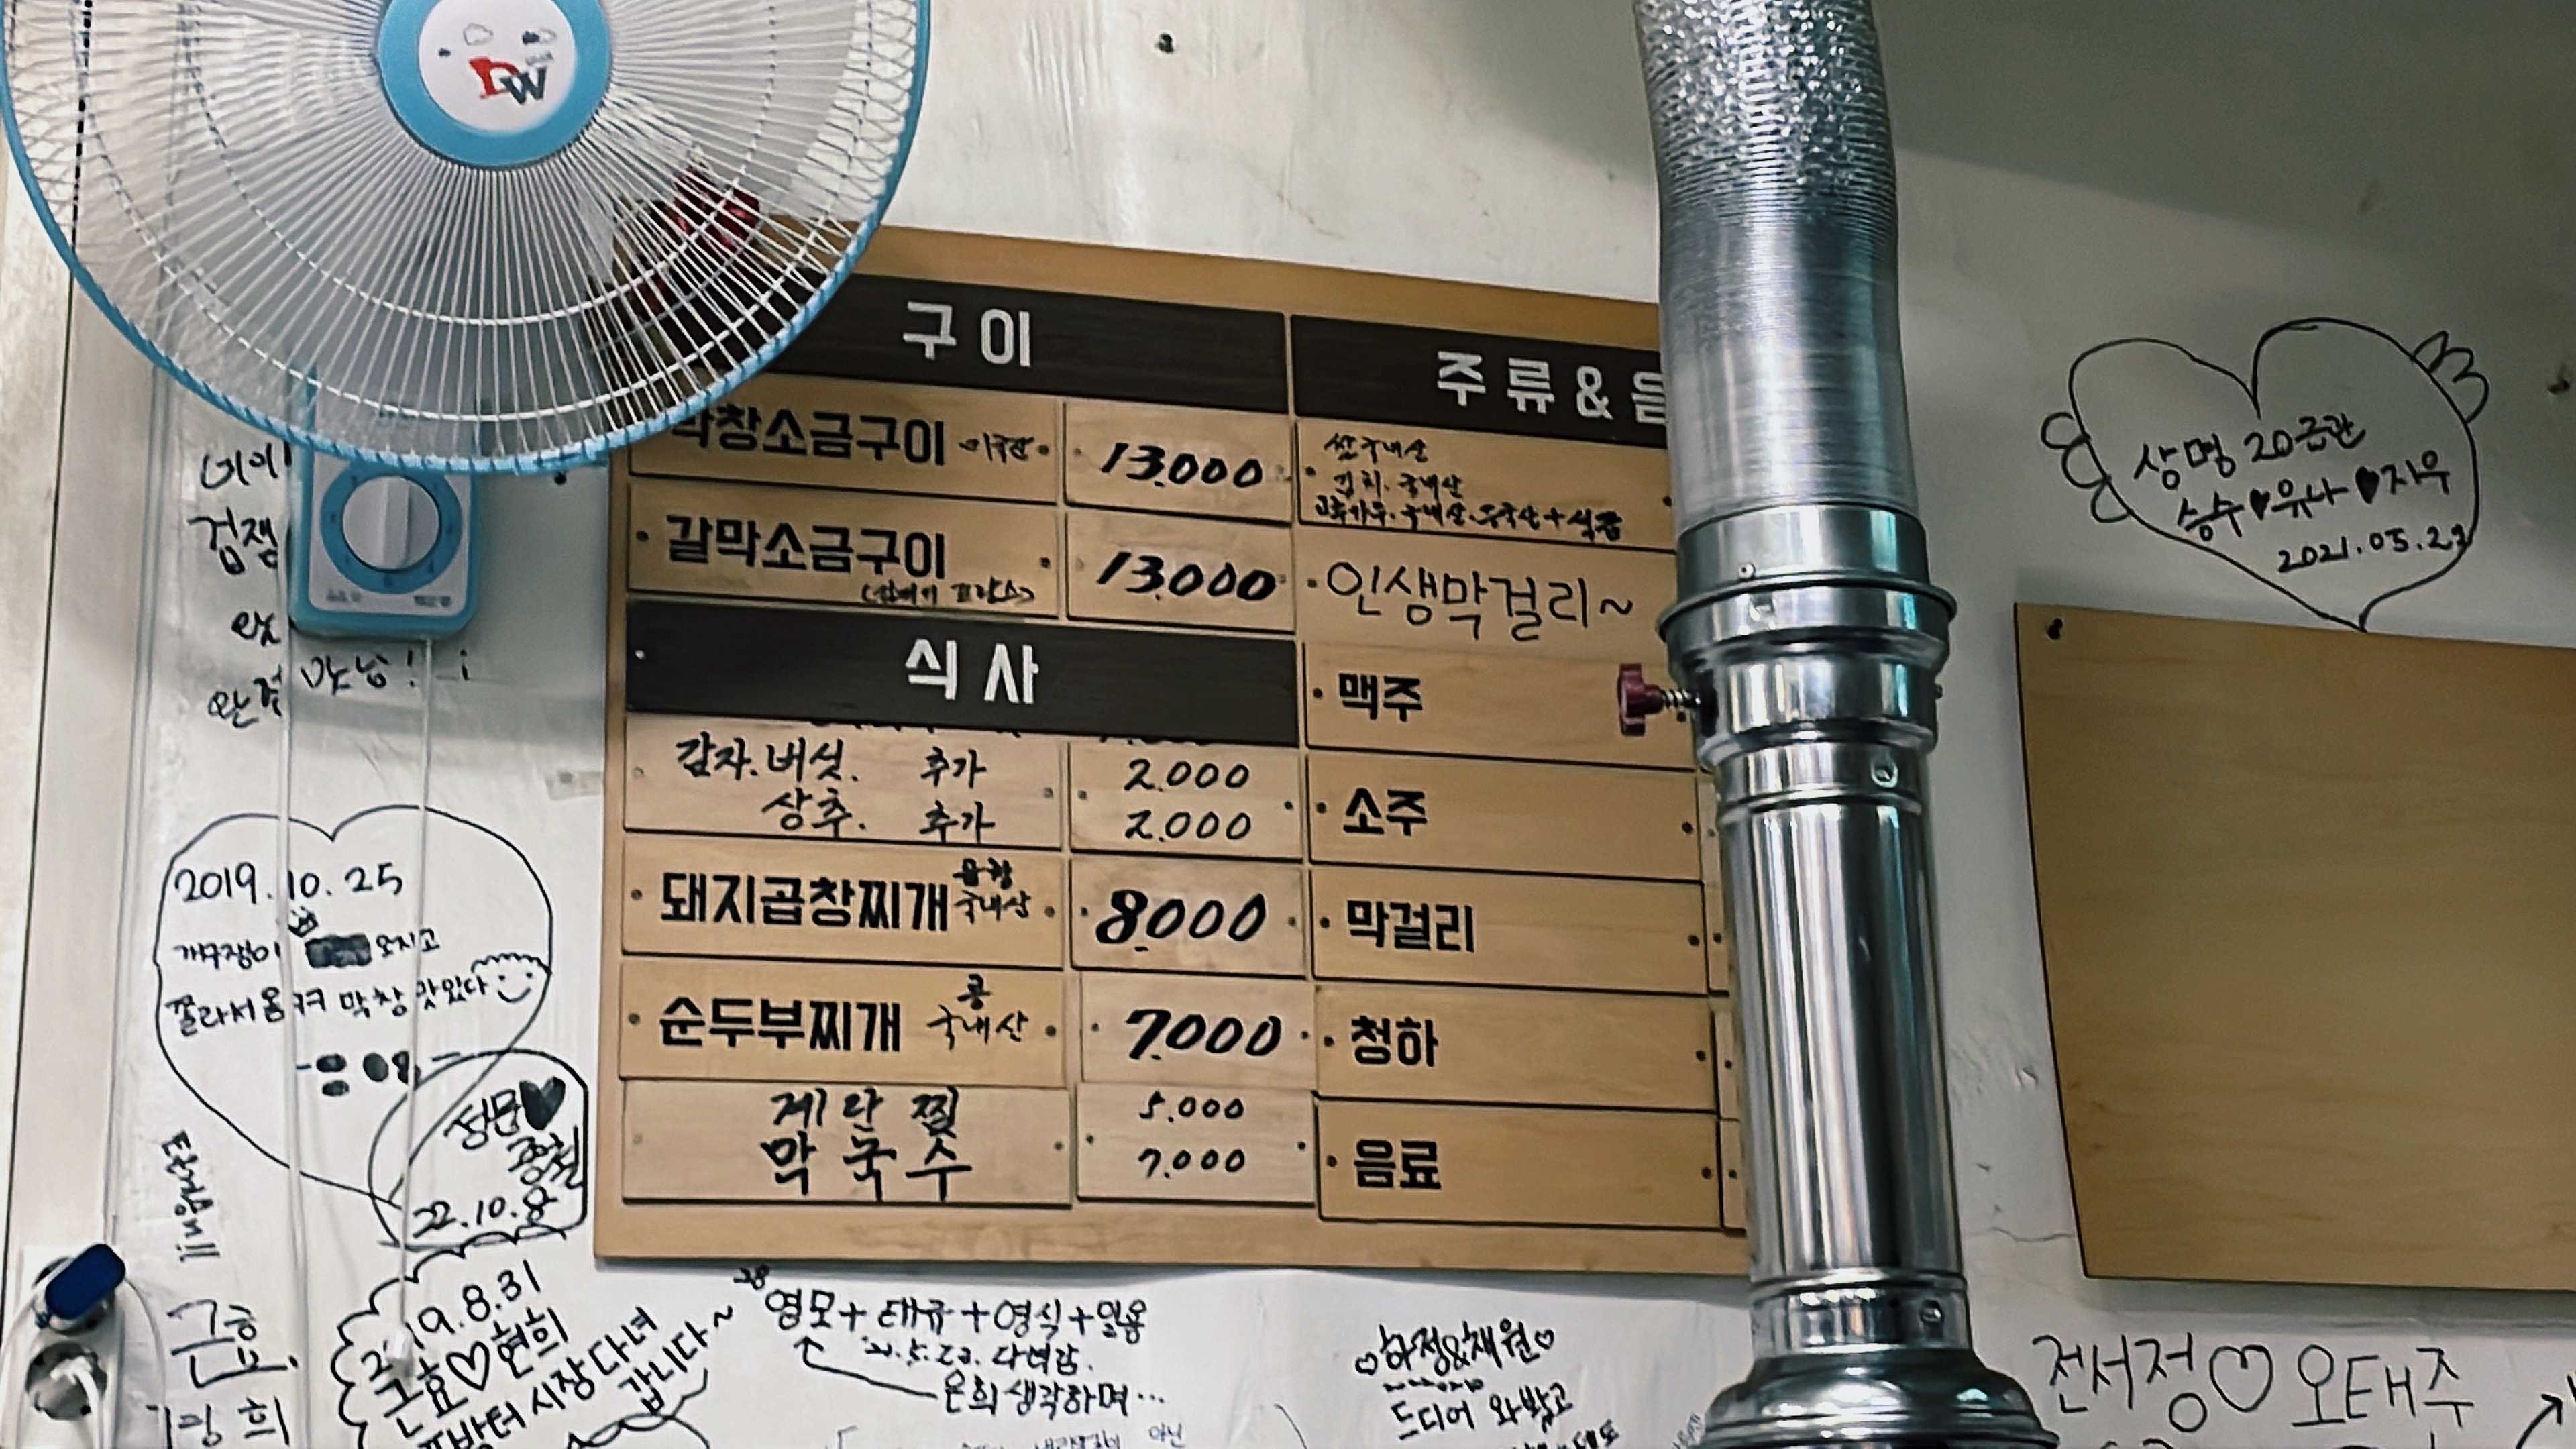 DW
구이
막창소금구이 미국산
13.000
갈막소금구이
13.000
식사
감자.버섯. 추가 2.000
상추. 추가 2.000
돼지곱창찌개 국내산
8.000
순두부찌개 콩 국내산
7.000
계란찜 5.000
막국수 7.000
주류&음
쌀국내산
김치.국내산
고추가루.국내산.중국산+식품
인생막걸리~
맥주
소주
막걸리
청하
음료
상명 20금관
승수♥유나♥지우
2021.05.23
겁쟁
2019.10.25
개무쟁이 오지고
쫄라서 옴 ㅋㅋ 막창 맛있다
성문♥
22.10.8
2019.8.31
근효♡현희
시장 다녀
갑니다~
근효.
영모+태규+영식+일용
다녀감.
은희 생각하며...
♡하정&채원♡
드디어 와봤고
전서정♡오태주